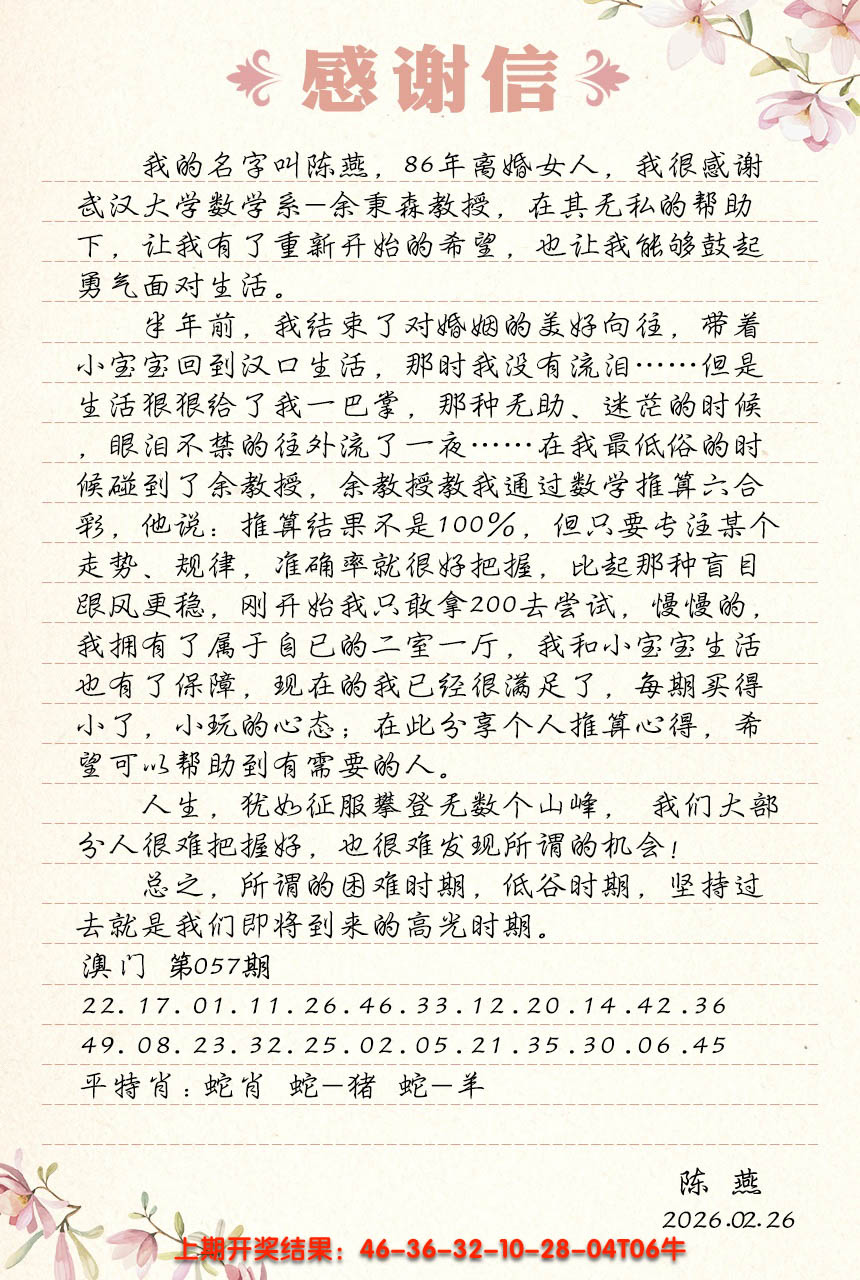 感谢信
我的名字叫陈燕，86年离婚女人，我很感谢
武汉大学数学系—余秉森教授，在其无私的帮助
下，让我有了重新开始的希望，也让我能够鼓起
勇气面对生活。
半年前，我结束了对婚姻的美好向往，带着
小宝宝回到汉口生活，那时我没有流泪……但是
生活狠狠给了我一巴掌，那种无助、迷茫的时候
，眼泪不禁的往外流了一夜……在我最低俗的时
候碰到了余教授，余教授教我通过数学推算六合
彩，他说：推算结果不是100%，但只要专注某个
走势、规律，准确率就很好把握，比起那种盲目
跟风更稳，刚开始我只敢拿200去尝试，慢慢的，
我拥有了属于自已的二室一厅，我和小宝宝生活
也有了保障，现在的我已经很满足了，每期买得
小了，小玩的心态；在此分享个人推算心得，希
望可以帮助到有需要的人。
人生，犹如征服攀登无数个山峰， 我们大部
分人很难把握好，也很难发现所谓的机会！
总之，所谓的困难时期，低谷时期，坚持过
去就是我们即将到来的高光时期。
澳门 第057期
22.17.01.11.26.46.33.12.20.14.42.36
49.08.23.32.25.02.05.21.35.30.06.45
平特肖:蛇肖 蛇—猪 蛇—羊
陈 燕
2026.02.26
上期开奖结果：46-36-32-10-28-04T06牛